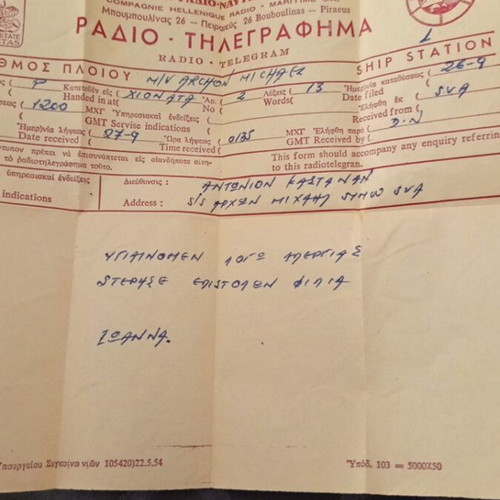 COMPAGNIE HELLENIQUE RADIO - MARITIME
Μπουμπουλίνας 26 — Πειραιεύς 26 Bouboulinas — Piraeus
ΡΑΔΙΟ - ΤΗΛΕΓΡΑΦΗΜΑ
RADIO - TELEGRAM
ΘΜΟΣ ΠΛΟΙΟΥ M/V ARCHON MICHAEL SHIP STATION
P Κατατεθὲν εἰς ΧΙΟΝΑΤΑ Ἀρ. 2 Λέξεις 13 Ἡμερ/νία καταθέσεως 26-9
Handed in at No Words Date filed
1200 ΜΧΓ Ὑπηρεσιακαὶ ἐνδείξεις Ἐλήφθη ἐκ SVA
GMT Servise indications Received from
Ἡμερ/νία λήψεως 27-9 Ὥρα λήψεως 0135 ΜΧΓ Ἐλήφθη παρὰ D.N
Date received Time received GMT Received by
ντυπον πρέπει νὰ ἐπισυνάπτεται εἰς οἱανδήποτε αἴτη-
τὸ ραδιοτηλεγράφημα τοῦτο.
This form should accompany any enquiry referring
to this radiotelegran.
ὑπηρεσιακαὶ ἐνδείξεις
indications
Διεύθυνσις : ΑΝΤΩΝΙΟΝ ΚΑΣΤΑΝΑΝ
Address : S/S ΑΡΧΩΝ ΜΙΧΑΗΛ SVA
ΥΓΙΑΙΝΟΜΕΝ ΛΟΓΩ ΑΠΕΡΓΙΑΣ
ΣΤΕΡΗΣΕ ΕΠΙΣΤΟΛΩΝ ΦΙΛΙΑ
ΙΩΑΝΝΑ.
105420)22.5.54
Ὑπόδ. 103 = 5000Χ50